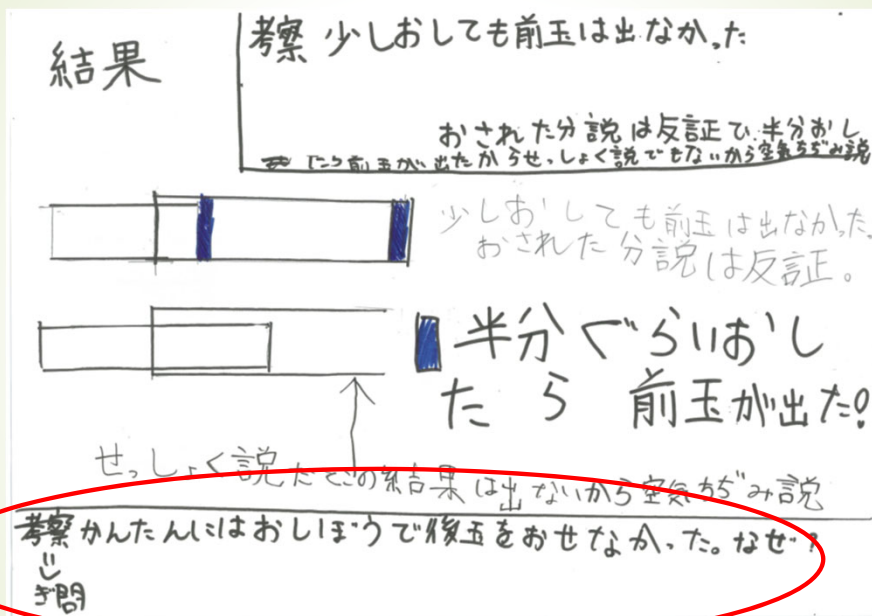 結果
考察 少しおしても前玉は出なかった
おされた分説は反証で、半分おし
たら前玉が出たからせっしょく説でもないから空気ちぢみ説
少しおしても前玉は出なかった。
おされた分説は反証。
半分ぐらいおし
たら 前玉が出た!
せっしょく説だとこの結果は出ないから空気ちぢみ説
考察 かんたんにはおしぼうで後玉をおせなかった。なぜ?
ぎ問